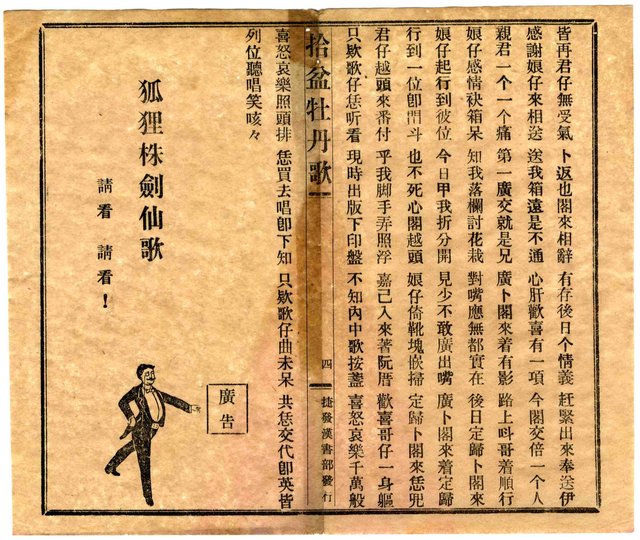 皆再君仔無受氣 卜返也閣來相辭 有存後日个情義 赶緊出來奉送伊
感謝娘仔來相送 送我箱遠是不通 心肝歡喜有一項 今閣交倍一个人
親君一个一个痛 第一廣交就是兄 廣卜閣來着有影 路上呌哥着順行
娘仔感情袂箱呆 知我落欄討花栽 對嘴應無都實在 後日定歸卜閣來
娘仔起行到彼位 今日甲我折分開 見少不敢廣出嘴 廣卜閣來着定歸
行到一位卽閂斗 也不死心閣越頭 娘仔倚靴塊嵌掃 定歸卜閣來恁兜
君仔越頭來番付 乎我脚手弄照浮 嘉己入來著阮厝 歡喜哥仔一身軀
只欵歌仔恁听看 現時出版下印盤 不知內中歌按盞 喜怒哀樂千萬般
拾盆牡丹歌 四 捷發漢書部發行
喜怒哀樂照頭排 恁買去唱卽下知 只欵歌仔曲未呆 共恁交代卽英皆
列位聽唱笑咳々
狐狸株劍仙歌
請看 請看！
廣告